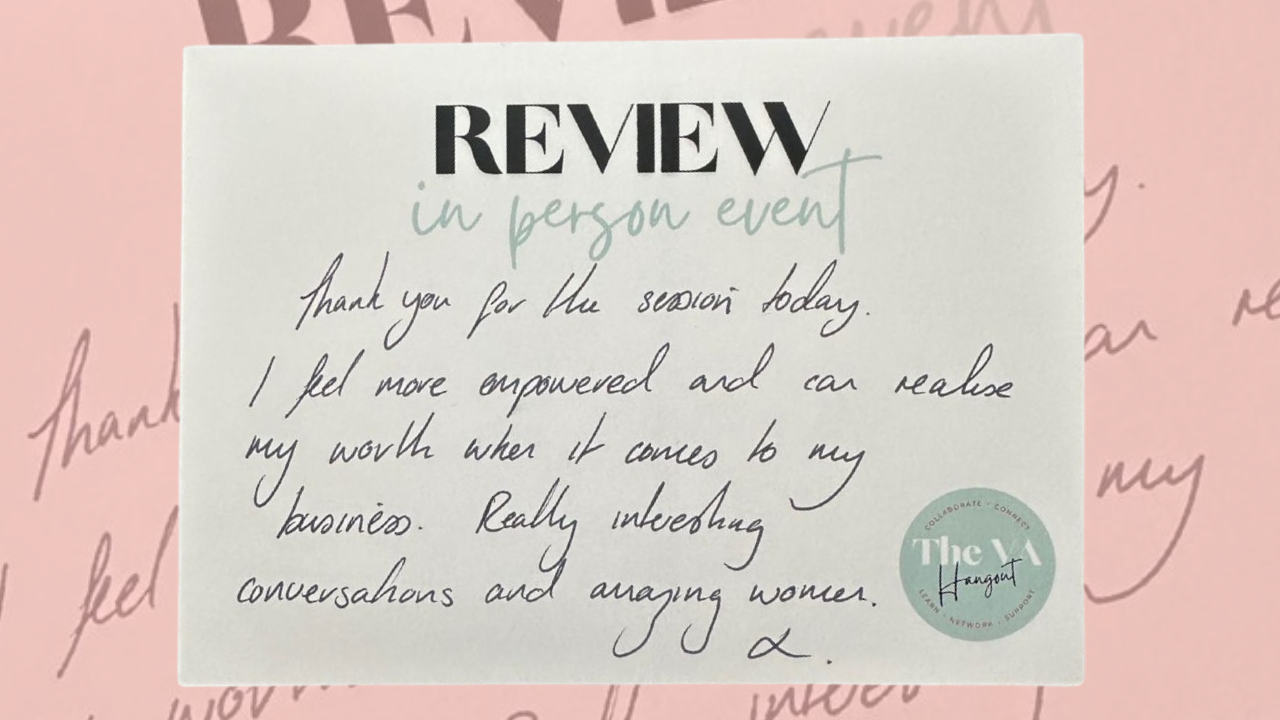 REVIEW
in person event
Thank you for the session today.
I feel more empowered and can realise
my worth when it comes to my
business. Really interesting
conversations and amazing women.
x.
COLLABORATE · CONNECT
The VA
Hangout
LEARN · NETWORK · SUPPORT